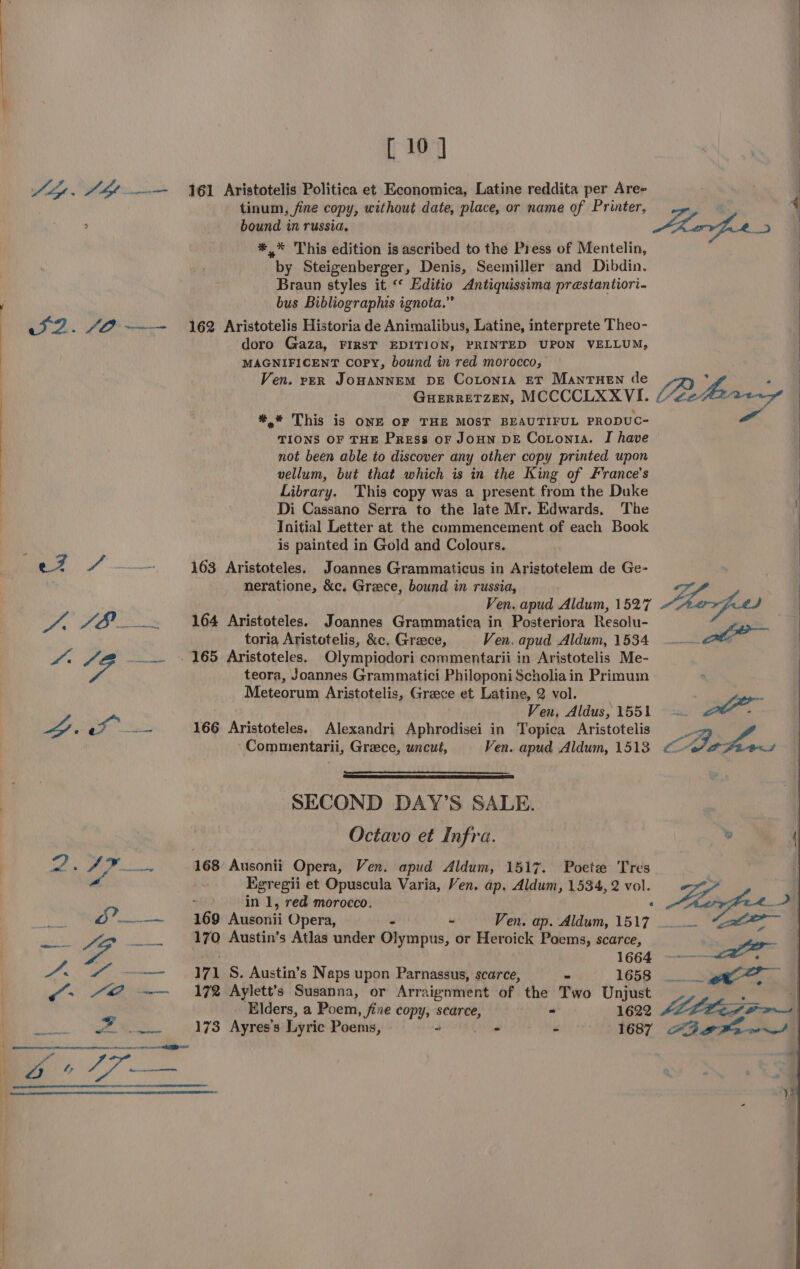 [ 10 ]
161 Aristotelis Politica et Economica, Latine reddita per Are-
tinum, fine copy, without date, place, or name of Printer,
bound in russia.
*** This edition is ascribed to the Press of Mentelin,
by Steigenberger, Denis, Seemiller and Dibdin.
Braun styles it “ Editio Antiquissima præstantiori-
bus Bibliographis ignota.”
52. 10 —— 162 Aristotelis Historia de Animalibus, Latine, interprete Theo-
doro Gaza, FIRST EDITION, PRINTED UPON VELLUM,
MAGNIFICENT COPY, bound in red morocco,
Ven. PER JOHANNEM DE COLONIA ET MANTHEN de
GHERRETZEN, MCCCCLXXVI.
*** This is ONE OF THE MOST BEAUTIFUL PRODUC-
TIONS OF THE PRESS OF JOHN DE COLONIA. I have
not been able to discover any other copy printed upon
vellum, but that which is in the King of France's
Library. This copy was a present from the Duke
Di Cassano Serra to the late Mr. Edwards. The
Initial Letter at the commencement of each Book
is painted in Gold and Colours.
163 Aristoteles. Joannes Grammaticus in Aristotelem de Ge-
neratione, &c. Græce, bound in russia,
Ven. apud Aldum, 1527 Thorpe
1. 18 —— 164 Aristoteles. Joannes Grammatica in Posteriora Resolu-
toria Aristotelis, &c. Græce, Ven. apud Aldum, 1534
165 Aristoteles. Olympiodori commentarii in Aristotelis Me-
teora, Joannes Grammatici Philoponi Scholia in Primum
Meteorum Aristotelis, Græce et Latine, 2 vol.
Ven. Aldus, 1551
4. 5 —— 166 Aristoteles. Alexandri Aphrodisei in Topica Aristotelis
Commentarii, Græce, uncut, Ven. apud Aldum, 1513
SECOND DAY'S SALE.
Octavo et Infra.
2. 17 —— 168 Ausonii Opera, Ven. apud Aldum, 1517. Poetæ Tres
Egregii et Opuscula Varia, Ven. ap. Aldum, 1534, 2 vol.
in 1, red morocco. Thorpe
169 Ausonii Opera, - - Ven. ap. Aldum, 1517
170 Austin's Atlas under Olympus, or Heroick Poems, scarce,
1664
171 S. Austin's Naps upon Parnassus, scarce, - 1658
172 Aylett's Susanna, or Arraignment of the Two Unjust
Elders, a Poem, fine copy, scarce, - 1622
173 Ayres's Lyric Poems, - - - 1687
6 " 17 ——